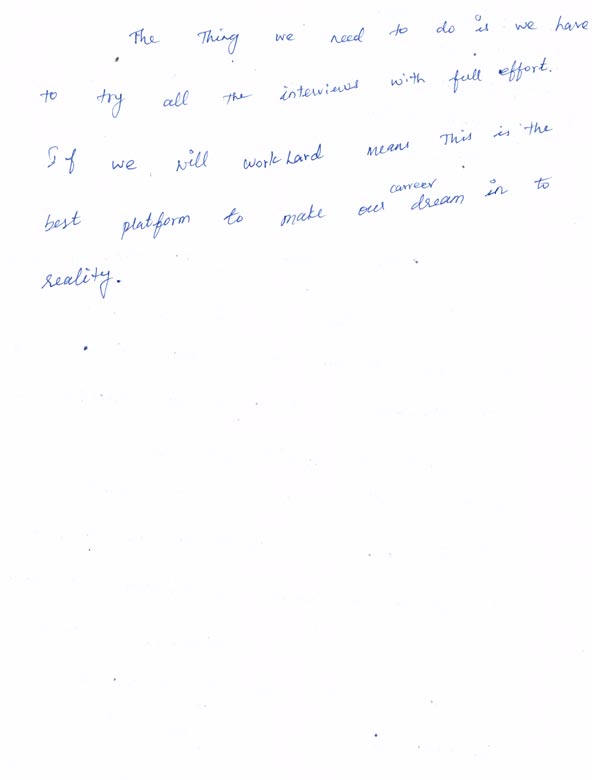 The Thing we need to do is we have
to try all the interviews with full effort.
If we will work hard means This is the
best platform to make our career dream in to
reality.